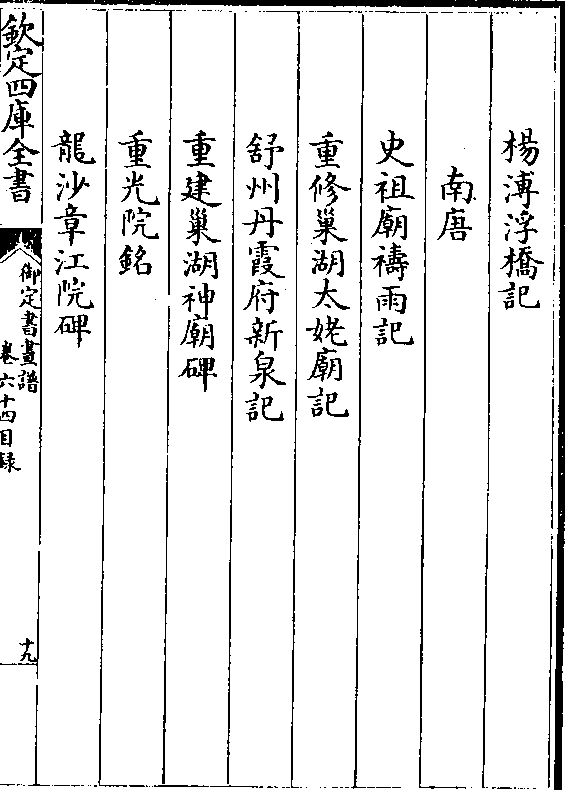 楊溥浮橋記
南唐
史祖廟禱雨記
重修巢湖太姥廟記
舒州丹霞府新泉記
重建巢湖神廟碑
重光院銘
龍沙章江院碑
欽定四庫全書
御定書畫譜
卷六十四目録
十九